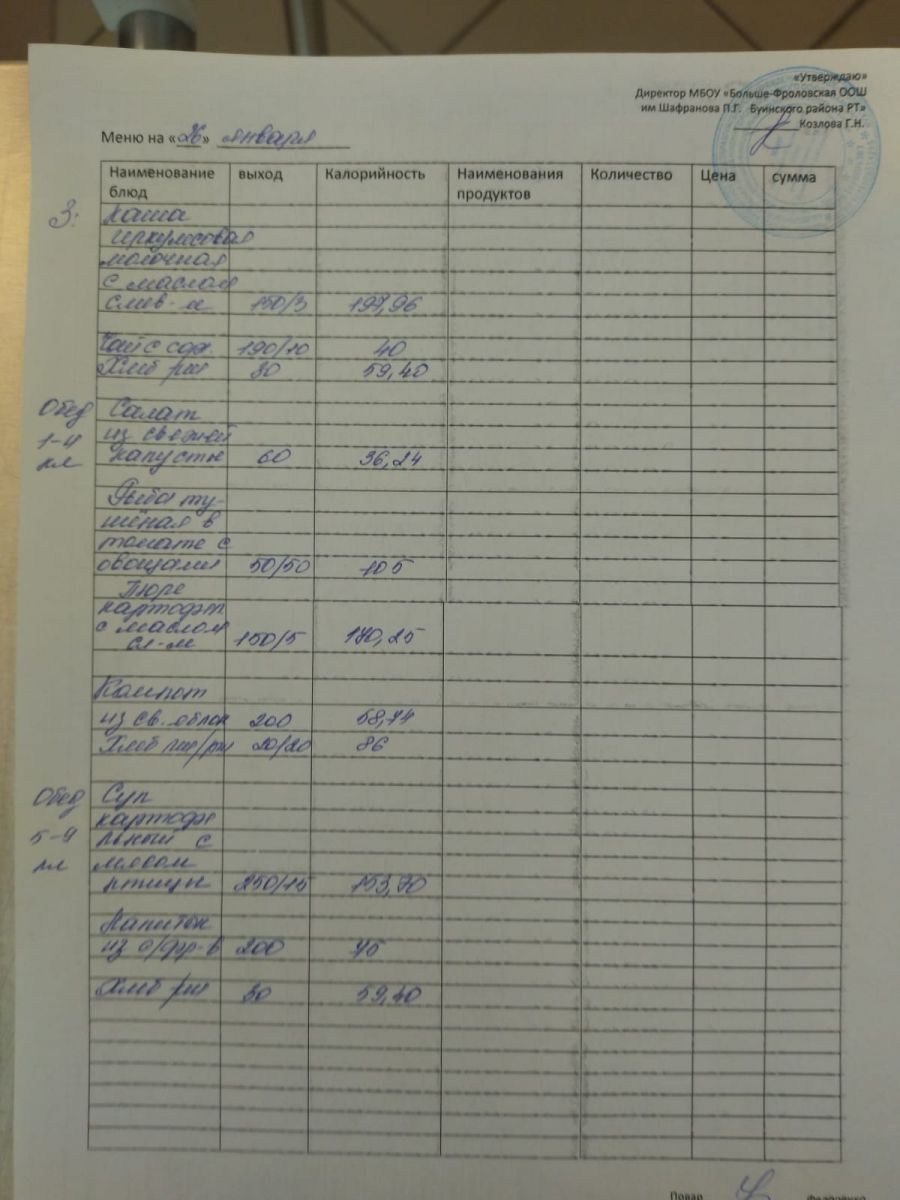 «Утверждаю»
Директор МБОУ «Больше-Фроловская ООШ
им Шафранова П.Г. Буинского района РТ»
Козлова Г.Н.
Меню на «26» января
Наименование блюд выход Калорийность Наименования продуктов Количество Цена сумма
З: Каша
геркулесовая
молочная
с маслом
слив-м 150/3 197,96
Чай с сах. 190/10 40
Хлеб рж 30 59,40
Обед Салат
1-4 из свежей
кл капусты 60 36,24
Рыба ту-
шёная в
томате с
овощами 50/50 105
Пюре
картоф
с маслом
сл-м 150/5 170,25
Компот
из св. яблок 200 58,74
Хлеб пш/рж 20/20 86
Обед Суп
картофе
5-9 льный с
кл мясом
птицы 250/15 153,70
Напиток
из с/фр-в 200 75
Хлеб рж 30 59,40
Повар Федоренко